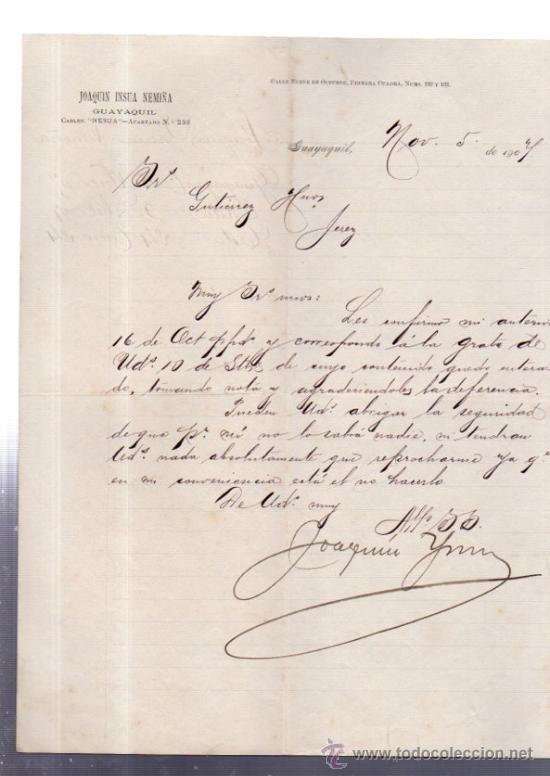 CALLE NUEVE DE OCTUBRE, PRIMERA CUADRA, NUMS.
JOAQUIN INSUA NEMIÑA
GUAYAQUIL
CABLES: "NESUA"—APARTADO N.° 236
Guayaquil, Nov. 5 de 1907
Srs.
Gutiérrez Hnos
Jerez
Muy Srs. mios:
Les confirmo mi anterior
16 de Oct ppdo. y correspondo á la grata de
Uds. 10 de Stbre de cuyo contenido quedo entera-
do, tomando nota y agradeciendoles la deferencia.
Pueden Uds. abrigar la seguridad
de que pr. mi no lo sabrá nadie, ni tendran
Uds. nada absolutamente que reprocharme ya qe.
en mi conveniencia está el no hacerlo
De Uds. muy
Affo. SS.
Joaquin
todocoleccion
www.todocoleccion.net